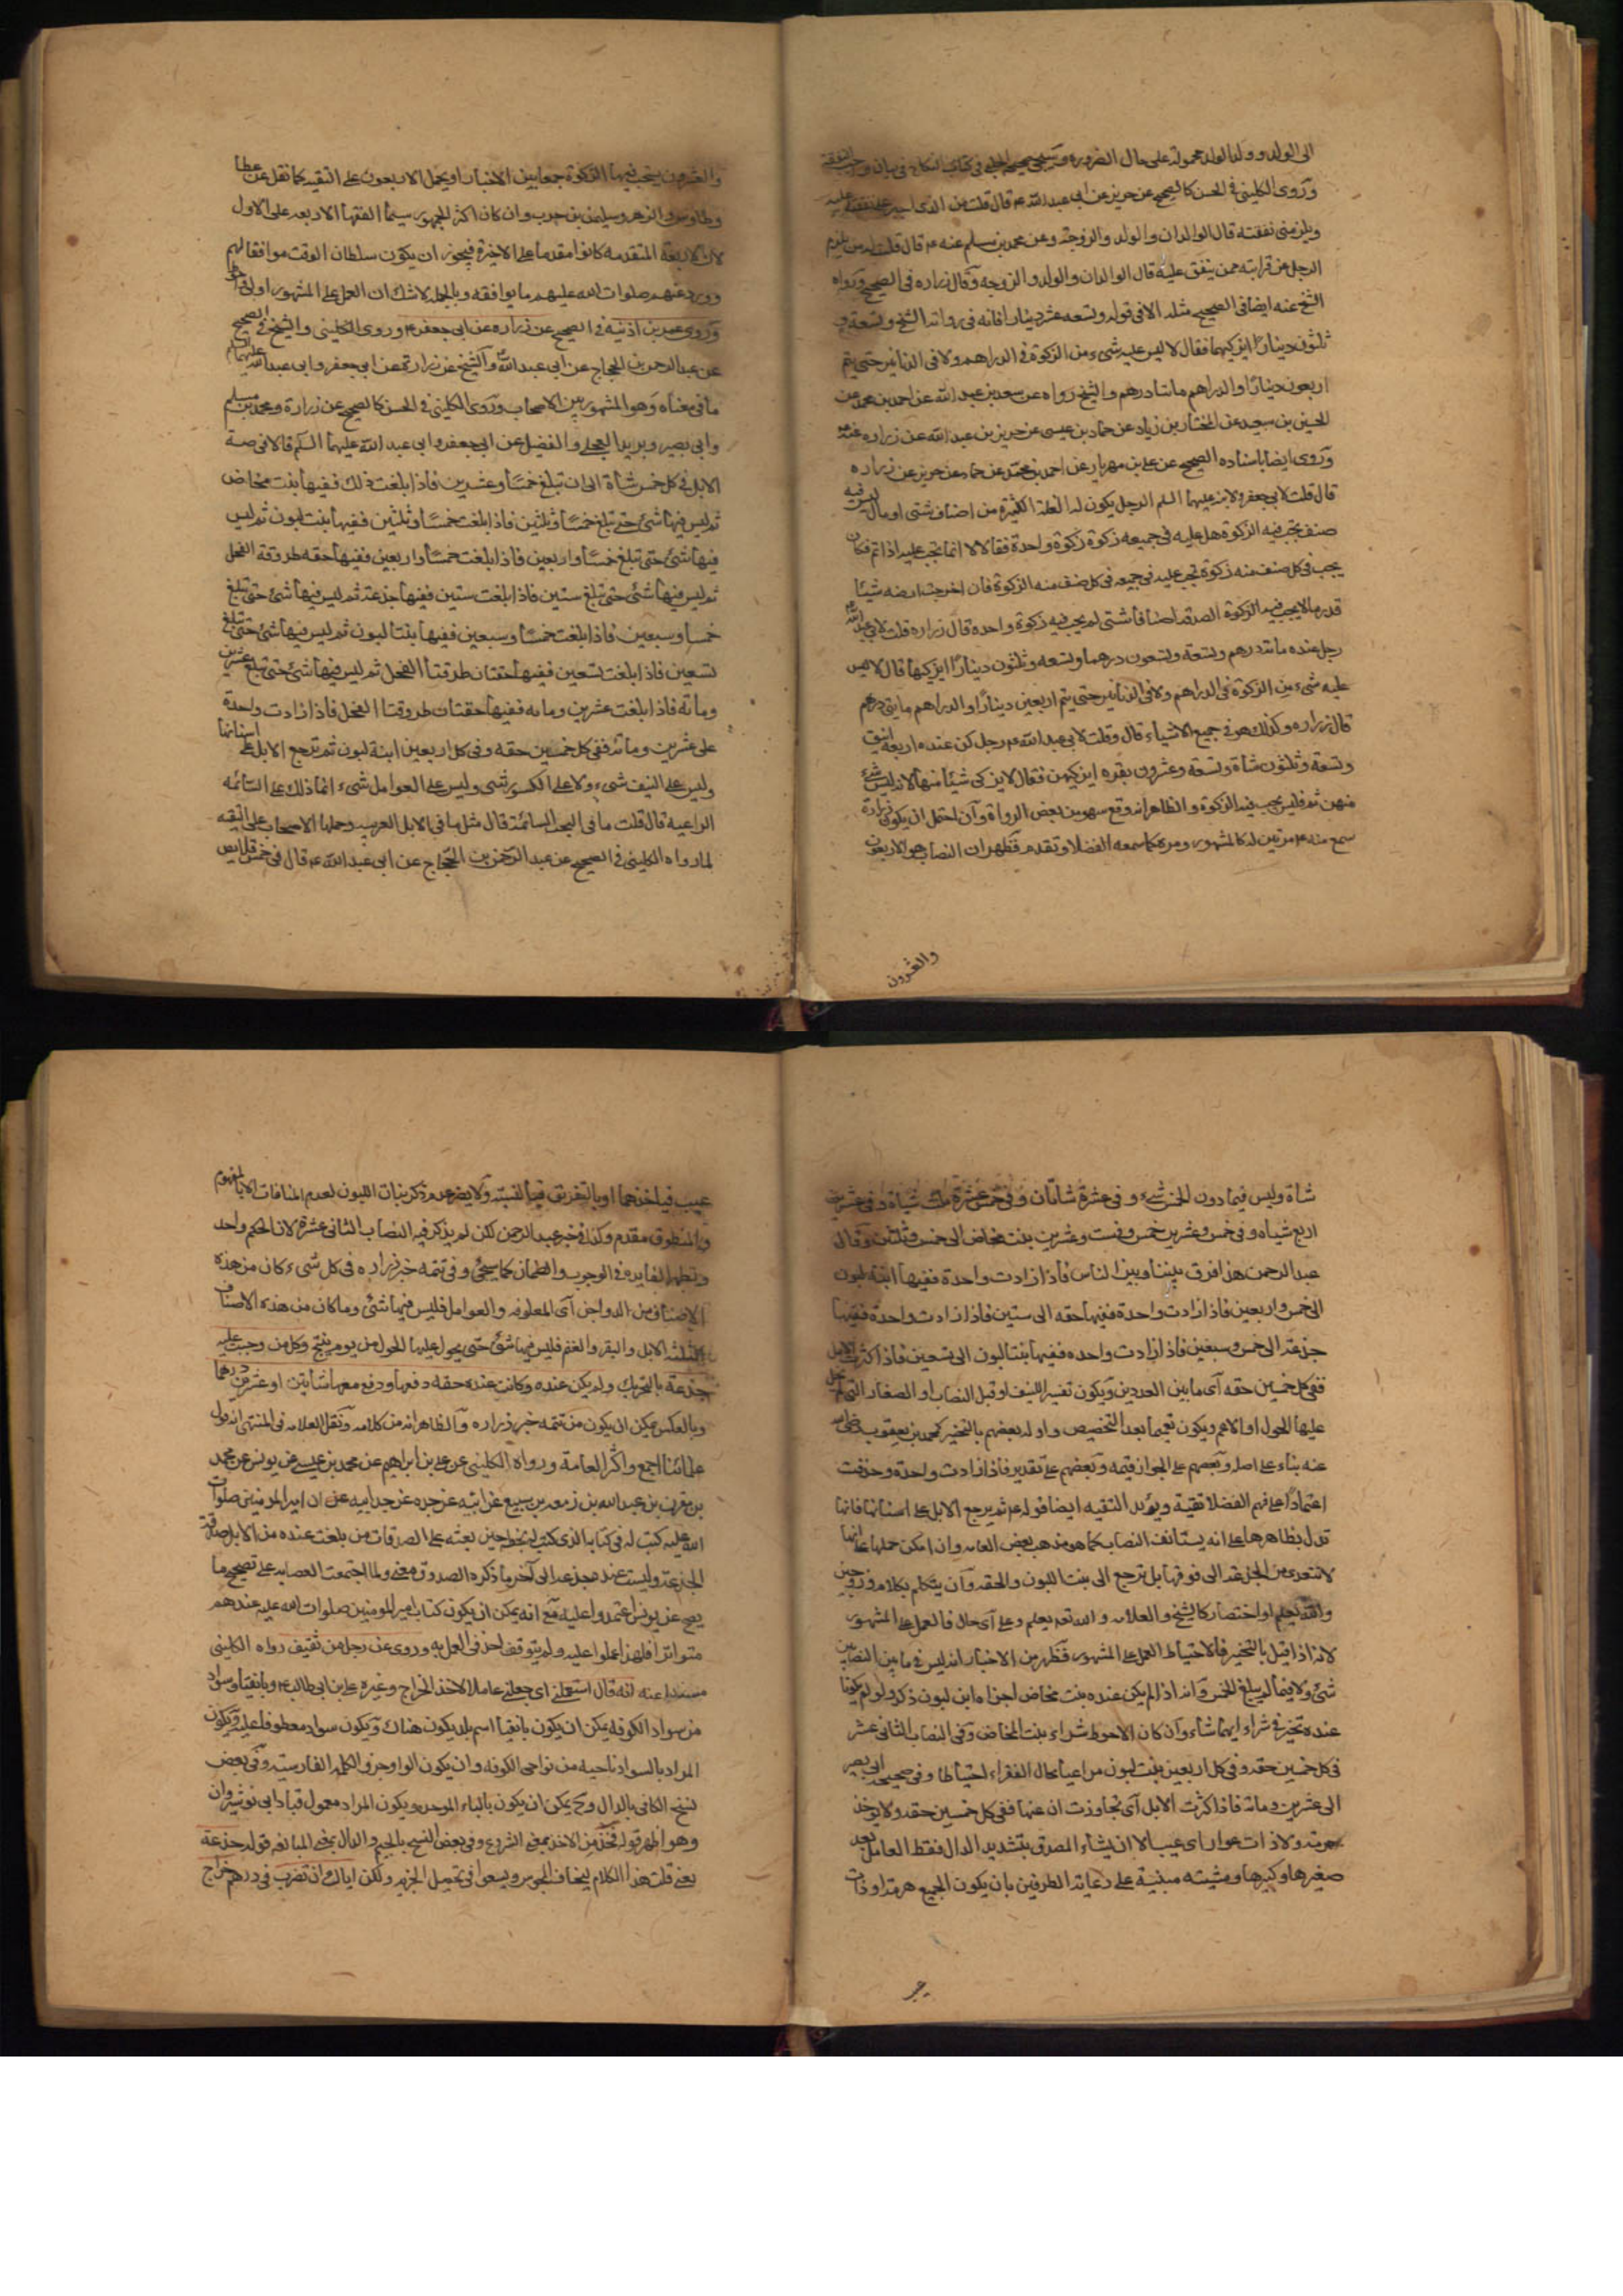 الى الوالد وولد الولد محمولة على حال الضرورة وسيجيئ صحيحة الحلبي في كتاب النكاح في بيان وجوب النفقة
وروى الكليني في الحسن كالصحيح عن حريز عن ابي عبد الله ع قال قلت من الذي اجبر على نفقته عليه
ويلزمني نفقته قال الوالدان والولد والزوجة وعن محمد بن مسلم عنه ع قال قلت له من يلزم
الرجل من قرابته ممن ينفق عليه قال الوالدان والولد والزوجه وقال زراره في الصحيح ورواه
الشيخ عنه ايضا في الصحيح مثله الا في قوله وتسعه عشر دينارا فانه في رواية الشيخ وتسعة و
ثلثون دينارا ايزكيهما فقال لا ليس عليه شيء من الزكوة في الدراهم ولا في الدنانير حتى يتم
اربعون دينارا والدراهم مائتا درهم والشيخ رواه عن سعد بن عبد الله عن احمد بن محمد عن
الحسين بن سعيد عن المختار بن زياد عن حماد بن عيسى عن حريز بن عبد الله عن زراره عنه ع
وروى ايضا باسناده الصحيح عن علي بن مهزيار عن احمد بن محمد عن حماد عن حريز عن زراره
قال قلت لابي جعفر ولابنه عليهما السلم الرجل يكون له الغلة الكثيرة من اصناف شتى او مال ليس فيه
صنف يجب فيه الزكوة هل عليه في جميعه زكوة زكوة واحدة فقالا لا انما تجب عليه اذا تم فكان
يجب في كل صنف منه زكوة تجب عليه في جميعه في كل صنف منه الزكوة فان اخرجت ارضه شيئا
قدر ما لا يجب فيه الزكوة الصدقه اصنافا شتى لم يجب فيه زكوة واحده قال زراره قلت لابي عبد الله ع
رجل عنده مائة درهم وتسعة وتسعون درهما وتسعه وثلثون دينارا ايزكيها قال لا ليس
عليه شيء من الزكوة في الدراهم ولا في الدنانير حتى يتم اربعين دينارا والدراهم مايتي درهم
قال زراره وكذلك هو في جميع الاشياء قال وقلت لابي عبد الله ع رجل كن عنده اربعة اينق
وتسعة وثلثون شاة وتسعة وعشرون بقره ايزكيهن فقال لا يزكي شيئا منها لانه ليس شيء
منهن تم فليس يجب فيه الزكوة والظاهر انه وقع سهو من بعض الرواة وان احتمل ان يكون زرارة
سمع منه ع مرتين له كالمشهور ومرة كما سمعه الفضلا وتقدم فظهر ان النصاب هو الاربعون
والعشرون
والعشرون يستحب فيها الزكوة جمعا بين الاخبار او يحمل الاربعون على التقيه كما نقل عن عطا
وطاوس والزهري وسليمن بن حرب وان كان اكثر الجمهور سيما الفقهأ الاربعه على الاول
لان الاربعة المتقدمه كانوا مقدما على الاخيرة فيجوز ان يكون سلطان الوقت موافقا لهم
وورد عنهم صلوات الله عليهم ما يوافقه وبالجمله لاشك ان العمل على المشهور اولى واحوط
وروى عمر بن اذينه في الصحيح عن زراره عن ابي جعفر ع وروى الكليني والشيخ في الصحيح
عن عبد الرحمن بن الحجاج عن ابي عبد الله ع والشيخ عن زرارة عن ابي جعفر وابي عبد الله عليهما السلم
ما في معناه وهو المشهور بين الاصحاب وروى الكليني في الحسن كالصحيح عن زرارة ومحمد بن مسلم
وابي بصير وبريد العجلي والفضيل عن ابي جعفر وابي عبد الله عليهما السلم قالا في صدقة
الابل في كل خمس شاة الى ان تبلغ خمسا وعشرين فاذا بلغت ذلك ففيها بنت مخاض
ثم ليس فيها شئ حتى تبلغ خمسا وثلثين فاذا بلغت خمسا وثلثين ففيها بنت لبون ثم ليس
فيها شئ حتى تبلغ خمسا واربعين فاذا بلغت خمسا واربعين ففيها حقه طروقة الفحل
ثم ليس فيها شئ حتى تبلغ ستين فاذا بلغت ستين ففيها جذعة ثم ليس فيها شئ حتى تبلغ
خمسا وسبعين فاذا بلغت خمسا وسبعين ففيها بنتا لبون ثم ليس فيها شئ حتى تبلغ
تسعين فاذا بلغت تسعين ففيها حقتان طروقتا الفحل ثم ليس فيها شئ حتى تبلغ عشرين
ومائة فاذا بلغت عشرين ومائه ففيها حقتان طروقتا الفحل فاذا زادت واحدة
على عشرين ومائة ففي كل خمسين حقه وفي كل اربعين ابنة لبون ثم ترجع الابل على اسنانها
وليس على النيف شيء ولا على الكسور شيء وليس على العوامل شيء انما ذلك على السائمه
الراعيه قال قلت ما في البخت السائمة قال مثل ما في الابل العربيه وحملها الاصحاب على التقيه
لما رواه الكليني في الصحيح عن عبد الرحمن بن الحجاج عن ابي عبد الله ع قال في خمس قلايص
شاة وليس فيما دون الخمس شيء وفي عشرة شاتان وفي خمس عشرة ثلث شياة وفي عشرين
اربع شياه وفي خمس وعشرين خمس وفي ست وعشرين بنت مخاض الى خمس وثلثين وقال
عبد الرحمن هذا فرق بيننا وبين الناس فاذا زادت واحدة ففيها ابنة لبون
الى خمس واربعين فاذا زادت واحدة ففيها حقه الى ستين فاذا زادت واحدة ففيها
جذعة الى خمس وسبعين فاذا زادت واحده ففيها بنتا لبون الى تسعين فاذا كثرت الابل
ففي كل خمسين حقه اي ما بين العددين ويكون تفسيرا للنيف او قبل النصاب او الصغار التي لم يحل
عليها الحول او الاعم ويكون تعميما بعد التخصيص واوله بعضهم بالتخيير كمحمد بن يعقوب رضى الله
عنه بناء على اصله وبعضهم على الجواز قيمه وبعضهم على تقدير فاذا زادت واحدة وحذفت
اعتمادا على فهم الفضلا تقية ويؤيد التقيه ايضا قوله ع ثم يرجع الابل على اسنانها فانها
تدل بظاهرها على انه يستانف النصاب كما هو مذهب بعض العامه وان امكن حملها على انها
لا تتعدى من الجذعة الى فوقها بل ترجع الى بنت اللبون والحقه وان يتكلم بكلام ذو وجهين
والله يعلم او اختصار كالشيخ والعلامه والله تعم يعلم وعلى اي حال فالعمل على المشهور
لانه اذا قيل بالتخيير فالاحتياط العمل على المشهور فظهر من الاخبار انه ليس في ما بين النصابين
شئ ولا فيما لم يبلغ الخمس وانه اذا لم يكن عنده بنت مخاض اجزاه ابن لبون ذكر ولو لم يكونا
عنده تخير في شراء ايهما شاء وان كان الاحوط شراء بنت المخاض وفي النصاب الثاني عشر
في كل خمسين حقه وفي كل اربعين بنت لبون مراعيا لحال الفقراء احتياطا وفي صحيحة ابي بصير
الى عشرين ومائة فاذا كثرت الابل اي تجاوزت ان عنها ففي كل خمسين حقه ولا يوخذ
هرمة ولا ذات عوار اي عيب الا ان يشاء المصدق بتشديد الدال فقط العامل يعد
صغيرها وكبيرها ومشيته مبنية على رعاية الطرفين بان يكون الجميع هرمة او ذات
عيب فياخذهما او بالتفريق فبالنسبة ولا يضر عدم ذكر بنات اللبون لعدم المنافات الا بالمفهوم
والمنطوق مقدم وكذا في خبر عبد الرحمن لكن لم يذكر فيه النصاب الثاني عشرة لان الحكم واحد
وتظهر الفايده في الوجوب والضمان كما سيجئ وفي تتمه خبر زراره في كل شيء كان من هذه
الاصناف من الدواجن اي المعلوفه والعوامل فليس فيها شئ وما كان من هذه الاصناف
الثلثه الابل والبقر والغنم فليس فيها شئ حتى يحول عليها الحول من يوم ينتج وكل من وجبت عليه
جذعة بالتحريك ولم يكن عنده وكانت عنده حقه دفعها ودفع معها شاتين او عشرين درهما
وبالعكس يمكن ان يكون من تتمه خبر زراره والظاهر انه من كلامه ونقل العلامه في المنتهى انه قول
علمائنا اجمع واكثر العامة ورواه الكليني عن علي بن ابراهيم عن محمد بن عيسى عن يونس عن محمد
بن مقرن بن عبد الله بن زمعه بن سبيع عن ابيه عن جده عن جد ابيه عن ان امير المومنين صلوات
الله عليه كتب له في كتابه الذي كتب له بخطه حين بعثه على الصدقات من بلغت عنده من الابل صدقة
الجذعة وليست عنده جذعه الى آخر ما ذكره الصدوق معنى ولما اجتمعت العصابه على تصحيح ما
يصح عن يونس اعتمدوا عليه مع انه يمكن ان يكون كتاب امير المومنين صلوات الله عليه عندهم
متواترا فلهذا عملوا عليه ولم يتوقف احد في العمل به وروى عن رجل من ثقيف رواه الكليني
مسندا عنه انه قال استعملني اي جعلني عاملا لاخذ الخراج وغيره علي بن ابي طالب ع وبانقيا وسواد
من سواد الكوفه يمكن ان يكون بانقيا اسم بلد يكون هناك ويكون سواد معطوفا عليه ويكون
المراد بالسواد ناحيه من نواحي الكوفه وان يكون الواو جزو الكلمه الفارسيه وفي بعض
نسخ الكافي بالدال وح يمكن ان يكون بالباء الموحده ويكون المراد معمول قباد ابي نوشيروان
وهو اظهر قوله فخذ من الاخذ بمعنى الشروع وفي بعض النسخ بالجيم والدال بمعنى المبالغه قوله جذعة
يعني قلت هذا الكلام ليخاف المجوس ويسعوا في تحصيل الجزيه ولكن اياك وان تضرب في درهم خراج